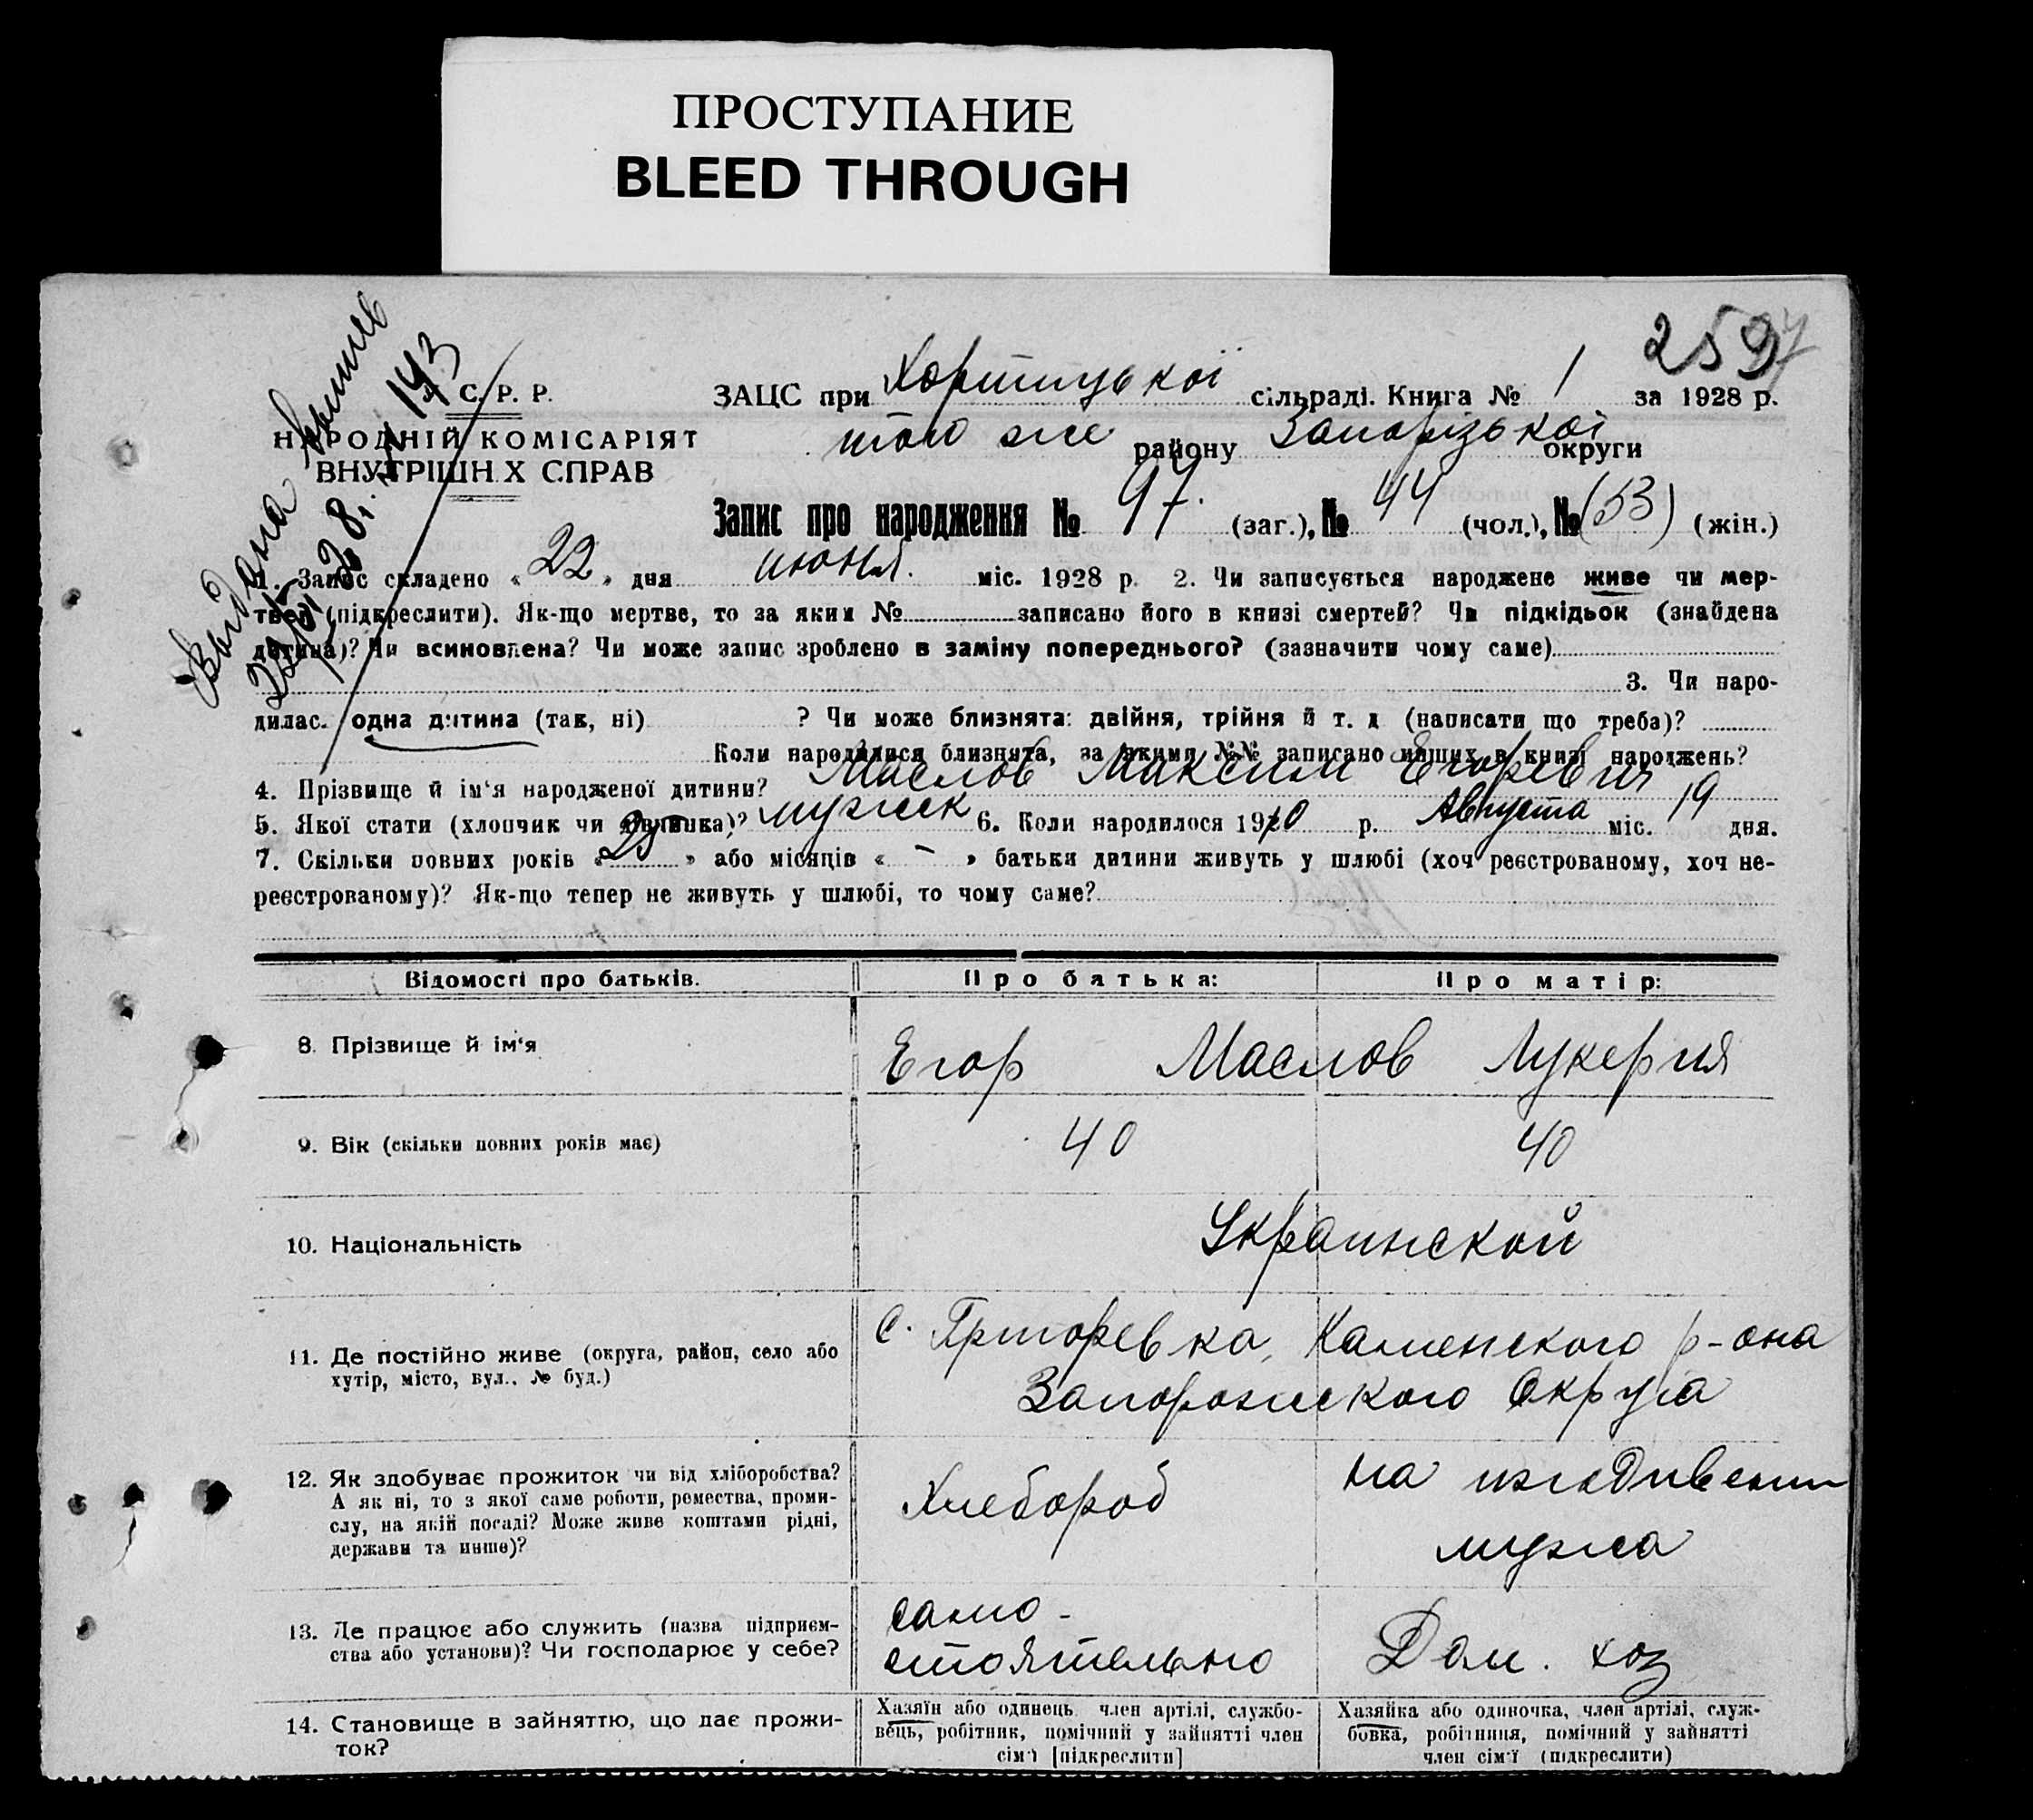 ПРОСТУПАНИЕ
BLEED THROUGH
2597
Выдана выпись
28. № 143
С. Р. Р.
НАРОДНІЙ КОМІСАРІЯТ
ВНУТРІШН Х СПРАВ
ЗАЦС при Хортицької сільраді. Книга № 1 за 1928 р.
того же району Запорізької округи
Запис про народження № 97. (заг.), № 44 (чол.), № (53) (жін.)
1. Запис складено « 22 » дня июня. міс. 1928 р. 2. Чи записується народжене живе чи мер-
тве (підкреслити). Як-що мертве, то за яким № записано його в книзі смертей? Чи підкідьок (знайдена
дитина)? Чи всиновлена? Чи може запис зроблено в заміну попереднього? (зазначити чому саме)
3. Чи наро-
дилас. одна дитина (так, ні) ? Чи може близнята: двійня, трійня й т. д (написати що треба)?
Коли народилися близнята, за якими №№ записано инших в книзі народжень?
4. Прізвище й ім‘я народженої дитини? Маслов Максим Егоревич
5. Якої стати (хлопчик чи дівчинка)? мужск 6. Коли народилося 1910 р. Августа міс. 19 дня.
7. Скільки повних років « 25 » або місяців « - » батьки дитини живуть у шлюбі (хоч реєстрованому, хоч не-
реєстрованому)? Як-що тепер не живуть у шлюбі, то чому саме?
Відомості про батьків. Про батька: Про матір:
8. Прізвище й ім‘я Егор Маслов Лукерия
9. Вік (скільки повних років має) 40 40
10. Національність Украинской
11. Де постійно живе (округа, район, село або
хутір, місто, вул.. № буд.)
с. Григоревка, Каменского р-она
Запорожского Округа
12. Як здобуває прожиток чи від хліборобства?
А як ні, то з якої саме роботи, ремества, проми-
слу, на якій посаді? Може живе коштами рідні,
держави та инше)?
Хлебороб
на иждивении
мужа
13. Де працює або служить (назва підприєм-
ства або установи)? Чи господарює у себе?
само-
стоятельно
Дом. хоз
14. Становище в зайняттю, що дає прожи-
ток?
Хазяїн або одинець, член артілі, службо-
вець, робітник, помічний у зайнятті член
сім‘ї [підкреслити]
Хазяйка або одиночка, член артілі, служ-
бовка, робітниця, помічний у зайнятті
член сім‘ї (підкреслити)